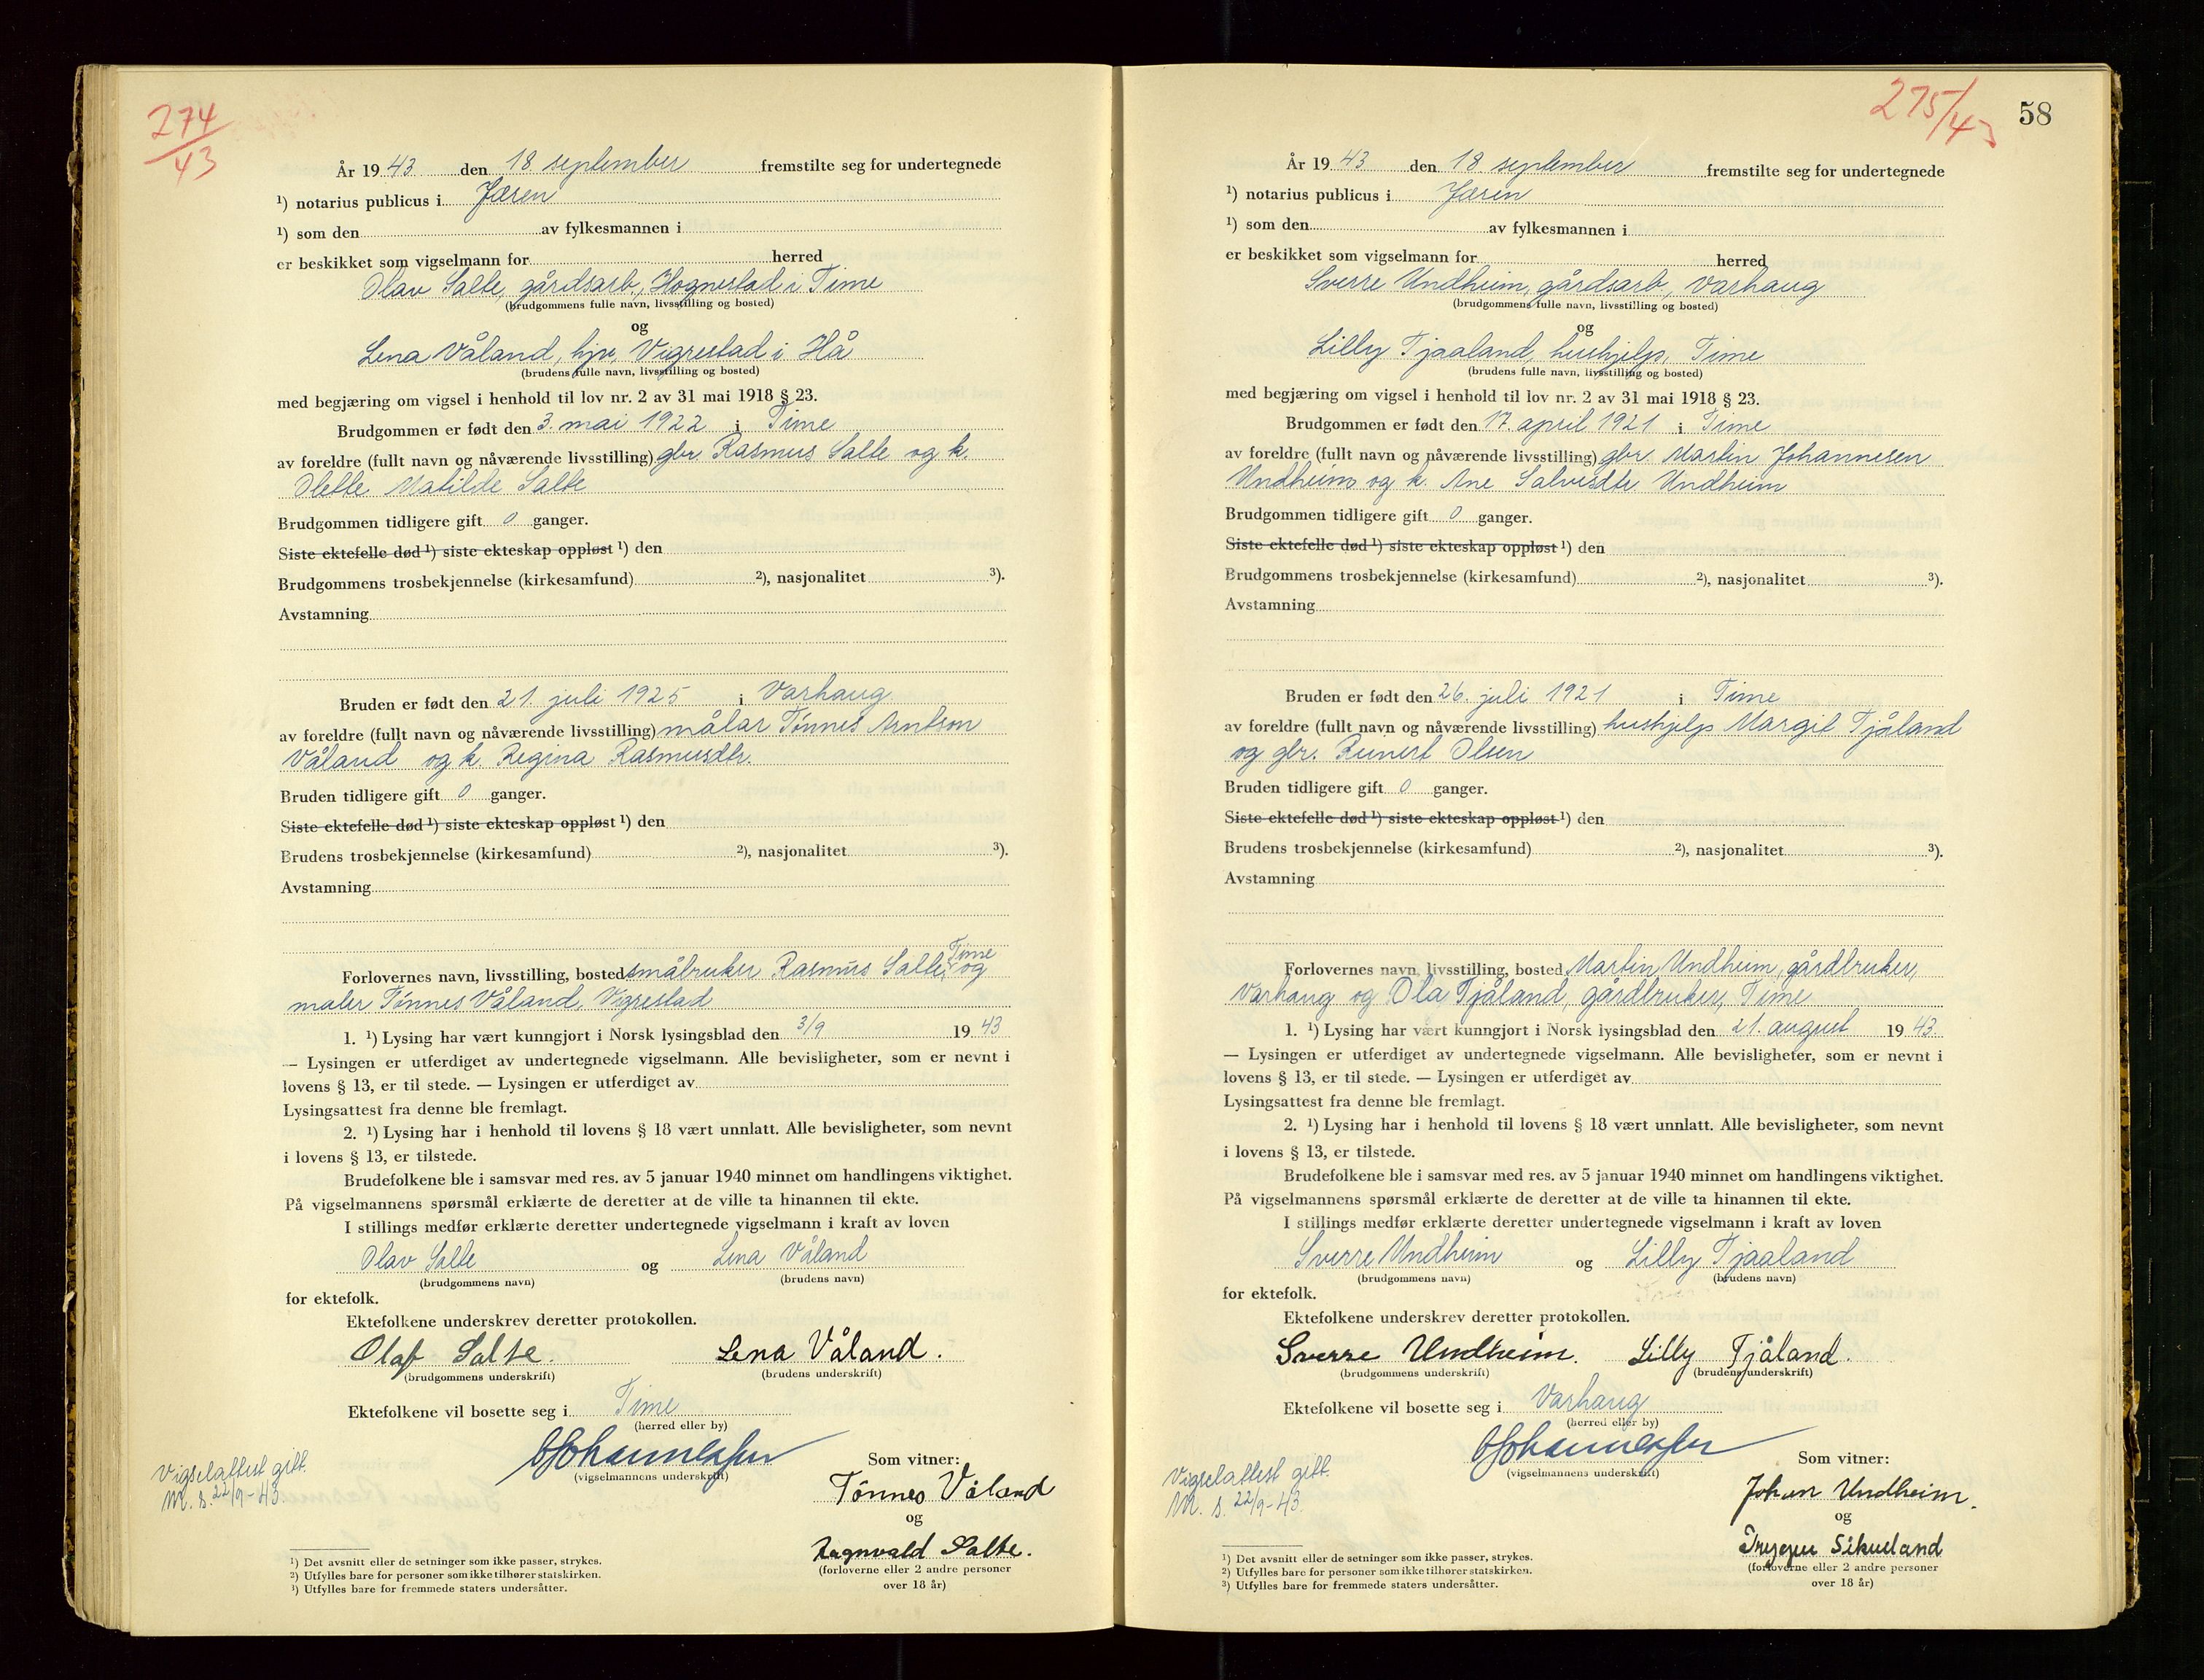 274
43
År 1943 den 18 september fremstilte seg for undertegnede
¹) notarius publicus i Jæren
¹) som den av fylkesmannen i
er beskikket som vigselmann for herred
Olav Salte, gårdsarb., Hognestad i Time
(brudgommens fulle navn, livsstilling og bosted)
og
Lena Våland, hjv, Vigrestad i Hå
(brudens fulle navn, livsstilling og bosted)
med begjæring om vigsel i henhold til lov nr. 2 av 31 mai 1918 § 23.
Brudgommen er født den 3. mai 1922 i Time
av foreldre (fullt navn og nåværende livsstilling) gbr. Rasmus Salte og k.
Olette Matilde Salte
Brudgommen tidligere gift 0 ganger.
Siste ektefelle død ¹) siste ekteskap oppløst ¹) den
Brudgommens trosbekjennelse (kirkesamfund) ²), nasjonalitet ³).
Avstamning
Bruden er født den 21. juli 1925 i Varhaug
av foreldre (fullt navn og nåværende livsstilling) målar Tønnes Arntson
Våland og k. Regina Rasmusdtr.
Bruden tidligere gift 0 ganger.
Siste ektefelle død ¹) siste ekteskap oppløst ¹) den
Brudens trosbekjennelse (kirkesamfund) ²), nasjonalitet ³).
Avstamning
Forlovernes navn, livsstilling, bosted småbruker Rasmus Salte, Time og
maler Tønnes Våland, Vigrestad
1. ¹) Lysing har vært kunngjort i Norsk lysingsblad den 3/9 1943
— Lysingen er utferdiget av undertegnede vigselmann. Alle bevisligheter, som er nevnt i
lovens § 13, er til stede. — Lysingen er utferdiget av
Lysingsattest fra denne ble fremlagt.
2. ¹) Lysing har i henhold til lovens § 18 vært unnlatt. Alle bevisligheter, som nevnt
i lovens § 13, er tilstede.
Brudefolkene ble i samsvar med res. av 5 januar 1940 minnet om handlingens viktighet.
På vigselmannens spørsmål erklærte de deretter at de ville ta hinannen til ekte.
I stillings medfør erklærte deretter undertegnede vigselmann i kraft av loven
Olav Salte og Lena Våland
(brudgommens navn) (brudens navn)
for ektefolk.
Ektefolkene underskrev deretter protokollen.
Olaf Salte. Lena Våland.
(brudgommens underskrift) (brudens underskrift)
Ektefolkene vil bosette seg i Time
(herred eller by)
(vigselmannens underskrift)
Som vitner:
Tønnes Våland
og
Ragnvald Salte.
(forloverne eller 2 andre personer
over 18 år)
Vigselattest gitt.
M. s. 22/9-43
¹) Det avsnitt eller de setninger som ikke passer, strykes.
²) Utfylles bare for personer som ikke tilhører statskirken.
³) Utfylles bare for fremmede staters undersåtter.
275/43
58
År 1943 den 18 september fremstilte seg for undertegnede
¹) notarius publicus i Jæren
¹) som den av fylkesmannen i
er beskikket som vigselmann for herred
Sverre Undheim, gårdsarb, Varhaug
(brudgommens fulle navn, livsstilling og bosted)
og
Lilly Tjaaland, hushjelp, Time
(brudens fulle navn, livsstilling og bosted)
med begjæring om vigsel i henhold til lov nr. 2 av 31 mai 1918 § 23.
Brudgommen er født den 17. april 1921 i Time
av foreldre (fullt navn og nåværende livsstilling) gbr. Martin Johannesen
Undheim og k. Ane Salvesdtr Undheim
Brudgommen tidligere gift 0 ganger.
Siste ektefelle død ¹) siste ekteskap oppløst ¹) den
Brudgommens trosbekjennelse (kirkesamfund) ²), nasjonalitet ³).
Avstamning
Bruden er født den 26. juli 1921 i Time
av foreldre (fullt navn og nåværende livsstilling) hushjelp Margit Tjåland
og gbr. Reinert Olsen
Bruden tidligere gift 0 ganger.
Siste ektefelle død ¹) siste ekteskap oppløst ¹) den
Brudens trosbekjennelse (kirkesamfund) ²), nasjonalitet ³).
Avstamning
Forlovernes navn, livsstilling, bosted Martin Undheim, gårdbruker,
Varhaug og Ola Tjåland, gårdbruker, Time
1. ¹) Lysing har vært kunngjort i Norsk lysingsblad den 21. august 1943.
— Lysingen er utferdiget av undertegnede vigselmann. Alle bevisligheter, som er nevnt i
lovens § 13, er til stede. — Lysingen er utferdiget av
Lysingsattest fra denne ble fremlagt.
2. ¹) Lysing har i henhold til lovens § 18 vært unnlatt. Alle bevisligheter, som nevnt
i lovens § 13, er tilstede.
Brudefolkene ble i samsvar med res. av 5 januar 1940 minnet om handlingens viktighet.
På vigselmannens spørsmål erklærte de deretter at de ville ta hinannen til ekte.
I stillings medfør erklærte deretter undertegnede vigselmann i kraft av loven
Sverre Undheim og Lilly Tjaaland
(brudgommens navn) (brudens navn)
for ektefolk.
Ektefolkene underskrev deretter protokollen.
Sverre Undheim. Lilly Tjåland.
(brudgommens underskrift) (brudens underskrift)
Ektefolkene vil bosette seg i Varhaug
(herred eller by)
(vigselmannens underskrift)
Som vitner:
Johan Undheim.
og
(forloverne eller 2 andre personer
over 18 år)
Vigselattest gitt.
M. s. 22/9-43.
¹) Det avsnitt eller de setninger som ikke passer, strykes.
²) Utfylles bare for personer som ikke tilhører statskirken.
³) Utfylles bare for fremmede staters undersåtter.